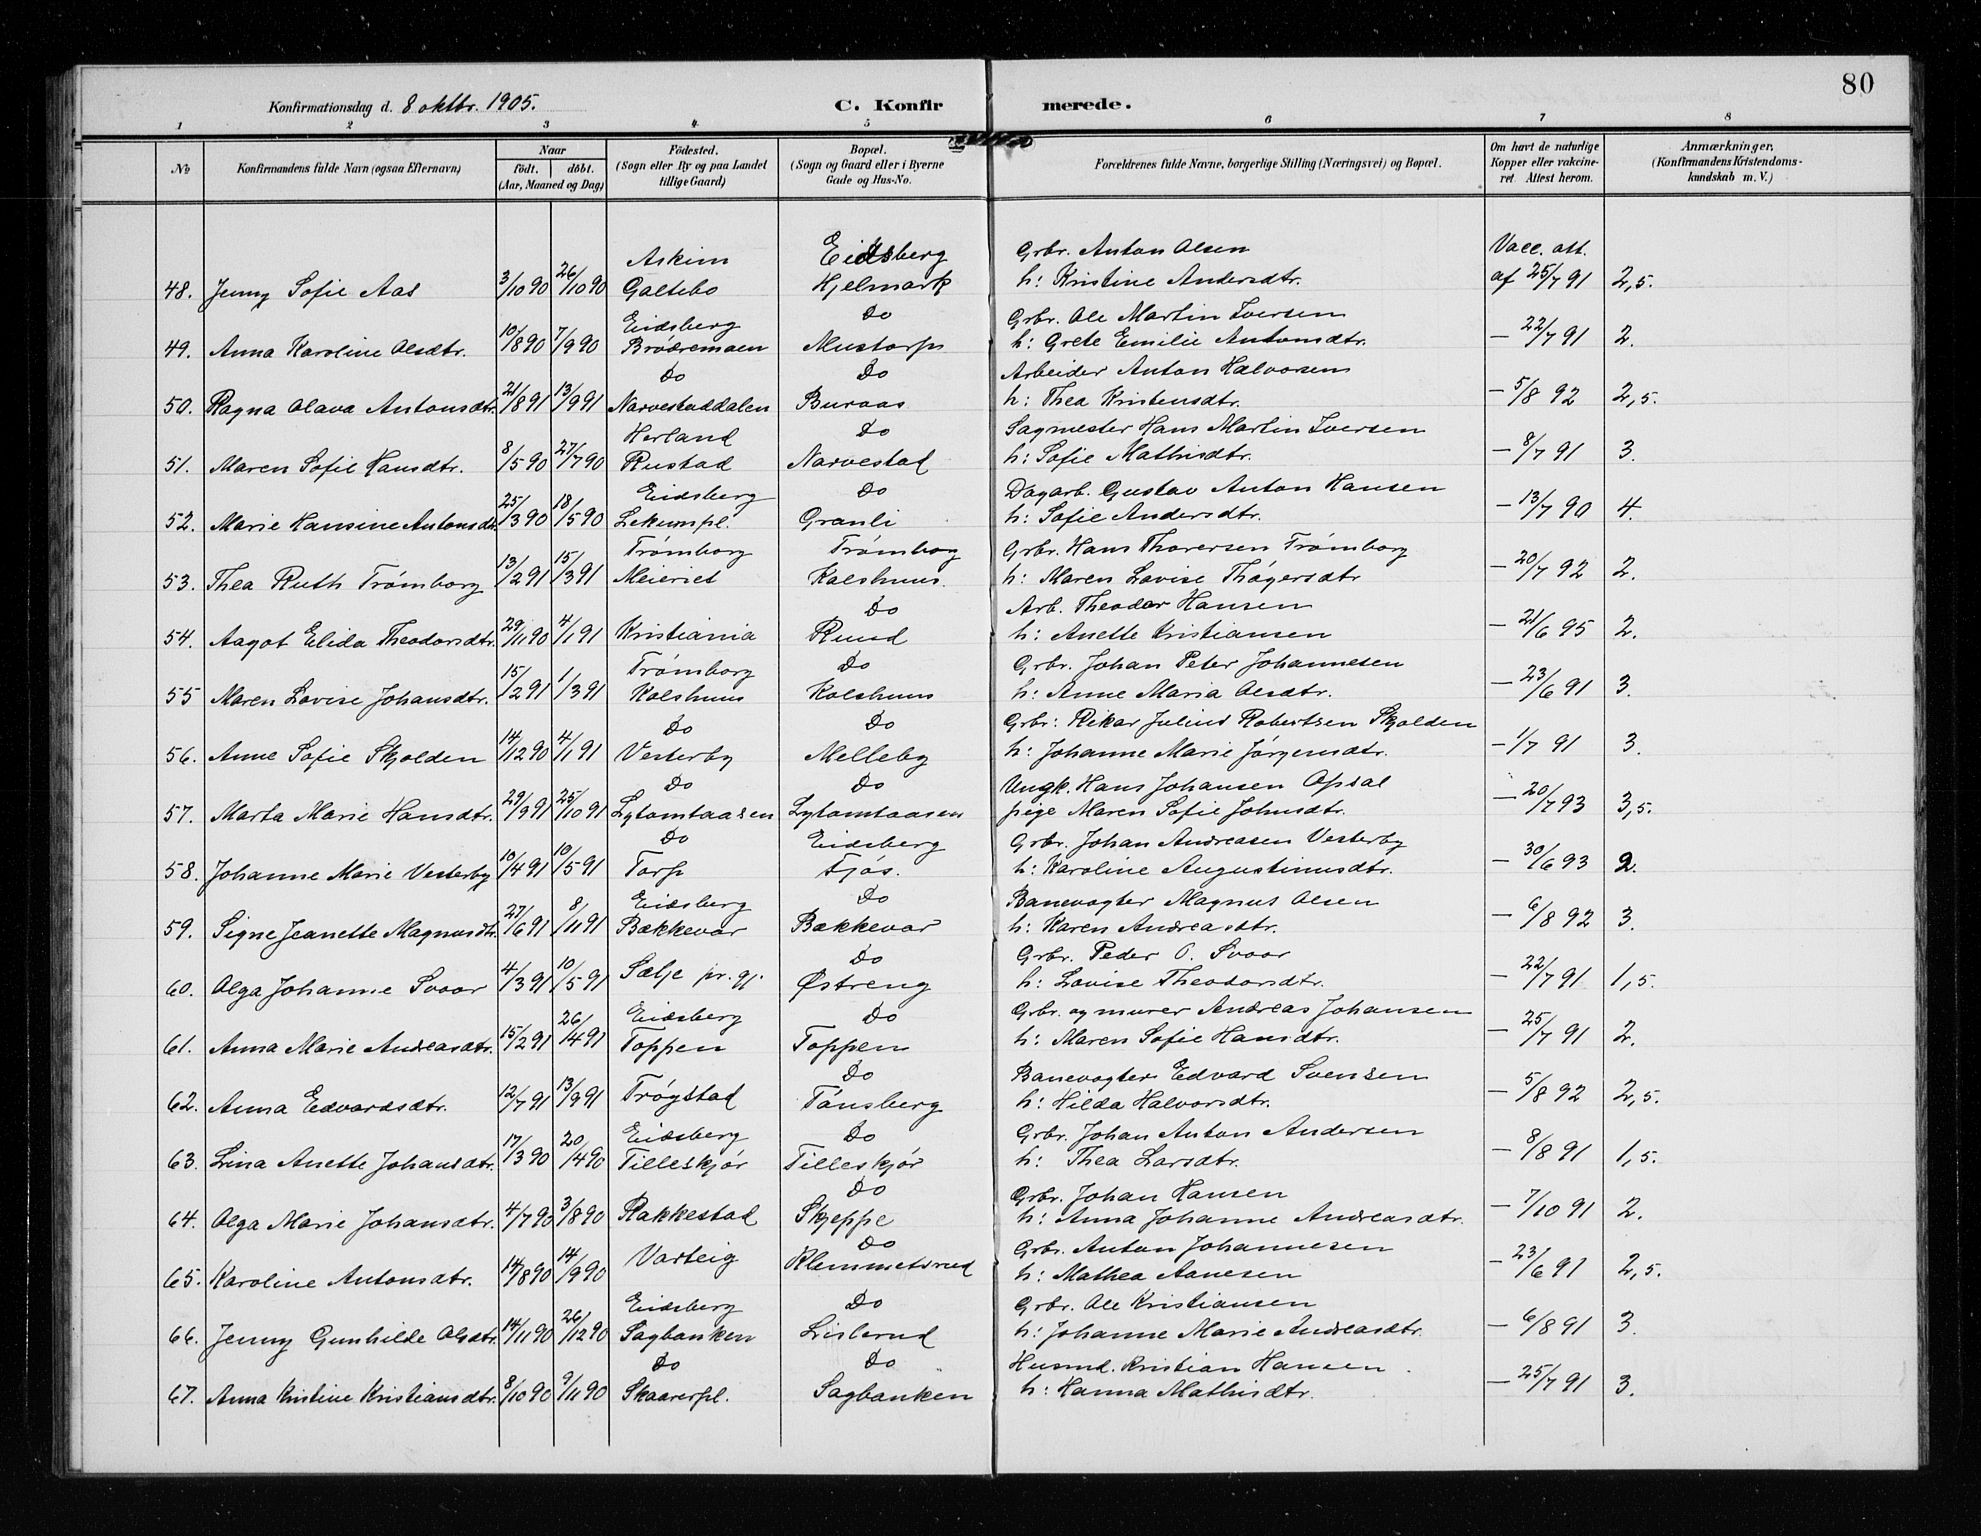 80
Konfirmationsdag d. 8 oktbr. 1905. C. Konfirmerede.
1 2 3 4. 5 6 7 8
No Konfirmandens fulde Navn (ogsaa Efternavn) Naar født. døbt. (Aar, Maaned og Dag) Fødested. (Sogn eller By og paa Landet tillige Gaard) Bopæl. (Sogn og Gaard eller i Byerne Gade og Hus-No. Forældrenes fulde Navne, borgerlige Stilling (Næringsvei) og Bopæl. Om havt de naturlige Kopper eller vaccineret Attest herom. Anmærkninger, (Konfirmandens Kristendomskundskab m. V.)
Askim Eidsberg Grbr. Anton Olsen Vacc. att.
48. Jenny Sofie Aas 3/10 90 26/10 90 Galtebo Hjelmark h: Kristine Andersdtr. af 25/7 91 2,5.
Eidsberg Do Grbr. Ole Martin Iversen
49. Anna Karoline Olsdtr. 10/8 90 7/9 90 Brødremoen Mustorp h: Grete Emilie Antonsdtr. – 22/7 91 2.
Do Do Arbeider Anton Halvorsen
50. Ragna Olava Antonsdtr. 21/8 91 13/9 91 Narvestaddalen Buraas h: Thea Kristensdtr. – 5/8 92 2,5.
Herland Do Sagmester Hans Martin Iversen
51. Maren Sofie Hansdtr. 8/5 90 27/7 90 Rustad Narvestad h: Sofie Mathisdtr. – 8/7 91 3.
Eidsberg Do Dagarb. Gustav Anton Hansen
52. Marie Hansine Antonsdtr. 25/3 90 18/5 90 Lekumpl. Granli h: Sofie Andersdtr. – 13/7 90 4.
Trømborg Trømborg Grbr. Hans Thoresen Trømborg
53. Thea Ruth Trømborg 13/2 91 15/3 91 Meieriet Kolshuus. h: Maren Lovise Thøgersdtr – 20/7 92 2.
Do Arb. Theodor Hansen
54. Aagot Elida Theodorsdtr. 29/11 90 4/1 91 Kristiania Ruud h: Anette Kristiansen – 21/6 95 2.
Trømborg Do Grbr. Johan Peter Johannesen
55 Maren Lovise Johansdtr. 15/2 91 1/3 91 Kolshuus Kolshuus h: Anne Maria Olsdtr. – 23/6 91 3.
Do Do Grbr: Rikar Julius Robertsen Skjolden
56. Anne Sofie Skjolden 14/12 90 4/1 91 Vesterby Melleby h: Johanne Marie Jørgensdtr. – 1/7 91 3.
Do Do Ungk. Hans Johansen Opsal
57. Marta Marie Hansdtr. 29/9 91 25/10 91 Lytomtaasen Lytomtaasen pige Maren Sofie Johnsdtr. – 20/7 93 3,5.
Do Eidsberg Grbr. Johan Andreasen Vesterby
58. Johanne Marie Vesterby 10/4 91 10/5 91 Torp Fjøs. h: Karoline Augustinusdtr. – 30/6 93 2.
Eidsberg Do Banevogter Magnus Olsen
59. Signe Jeanette Magnusdtr. 27/6 91 8/11 91 Bækkevar Bækkevar h: Karen Andreasdtr. – 6/8 92 3.
Do Grbr. Peder O. Svoor
60. Olga Johanne Svoor 4/3 91 10/5 91 Sælje pr. gj. Østreng h: Lovise Theodorsdtr. – 22/7 91 1,5.
Eidsberg Do Grbr. og murer Andreas Johansen
61. Anna Marie Andreasdtr. 15/2 91 26/4 91 Toppen Toppen h: Maren Sofie Hansdtr. – 25/7 91 2.
Do Banevogter Edvard Svensen
62. Anna Edvardsdtr. 12/7 91 13/9 91 Trøgstad Tønsberg h: Hilda Halvorsdtr. – 5/8 92 2,5.
Eidsberg Do Grbr. Johan Anton Andersen
63. Lina Anette Johansdtr. 17/3 90 20/4 90 Tilleskjør Tilleskjør h: Thea Larsdtr. – 8/8 91 1,5.
Do Grbr. Johan Hansen
64. Olga Marie Johansdtr. 4/7 90 3/8 90 Rakkestad Skjeppe h: Anna Johanne Andreasdtr. – 7/10 91 2.
Do Grbr. Anton Johannesen
65. Karoline Antonsdtr. 14/8 90 14/9 90 Varteig Klemmetsrud h: Mathea Aanesen – 23/6 91 2,5.
Eidsberg Do Grbr. Ole Kristiansen
66. Jenny Gunhilde Olsdtr. 14/11 90 26/12 90 Sagbanken Lislerud h: Johanne Marie Andreasdtr. – 6/8 91 3.
Do Do Husmd. Kristian Hansen
67. Anna Kristine Kristiansdtr. 8/10 90 9/11 90 Skaarerpl. Sagbanken h: Hanna Mathisdtr. – 25/7 91 3.